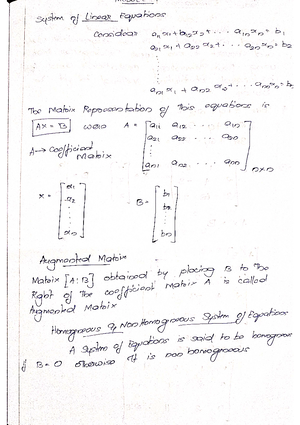 System of Linear Equations
Consider a11 x1 + a12 x2 + ... a1n xn = b1
a21 x1 + a22 x2 + ... a2n xn = b2
an1 x1 + an2 x2 + ... ann xn = bn
The Matrix Representation of this equations is
AX = B where A = [ a11 a12 ... a1n
a21 a22 ... a2n
A → Coefficient
Matrix
an1 an2 ... ann ] n×n
X = [ x1 x2 ... xn ] B = [ b1 b2 ... bn ]
Augmented Matrix
Matrix [A : B] obtained by placing B to the
Right of the coefficient Matrix A is called
Augmented Matrix
Homogneous & Non Homogneous System of Equations
A System of Equations is said to be homogneous
if B = 0 otherwise it is non homogneous